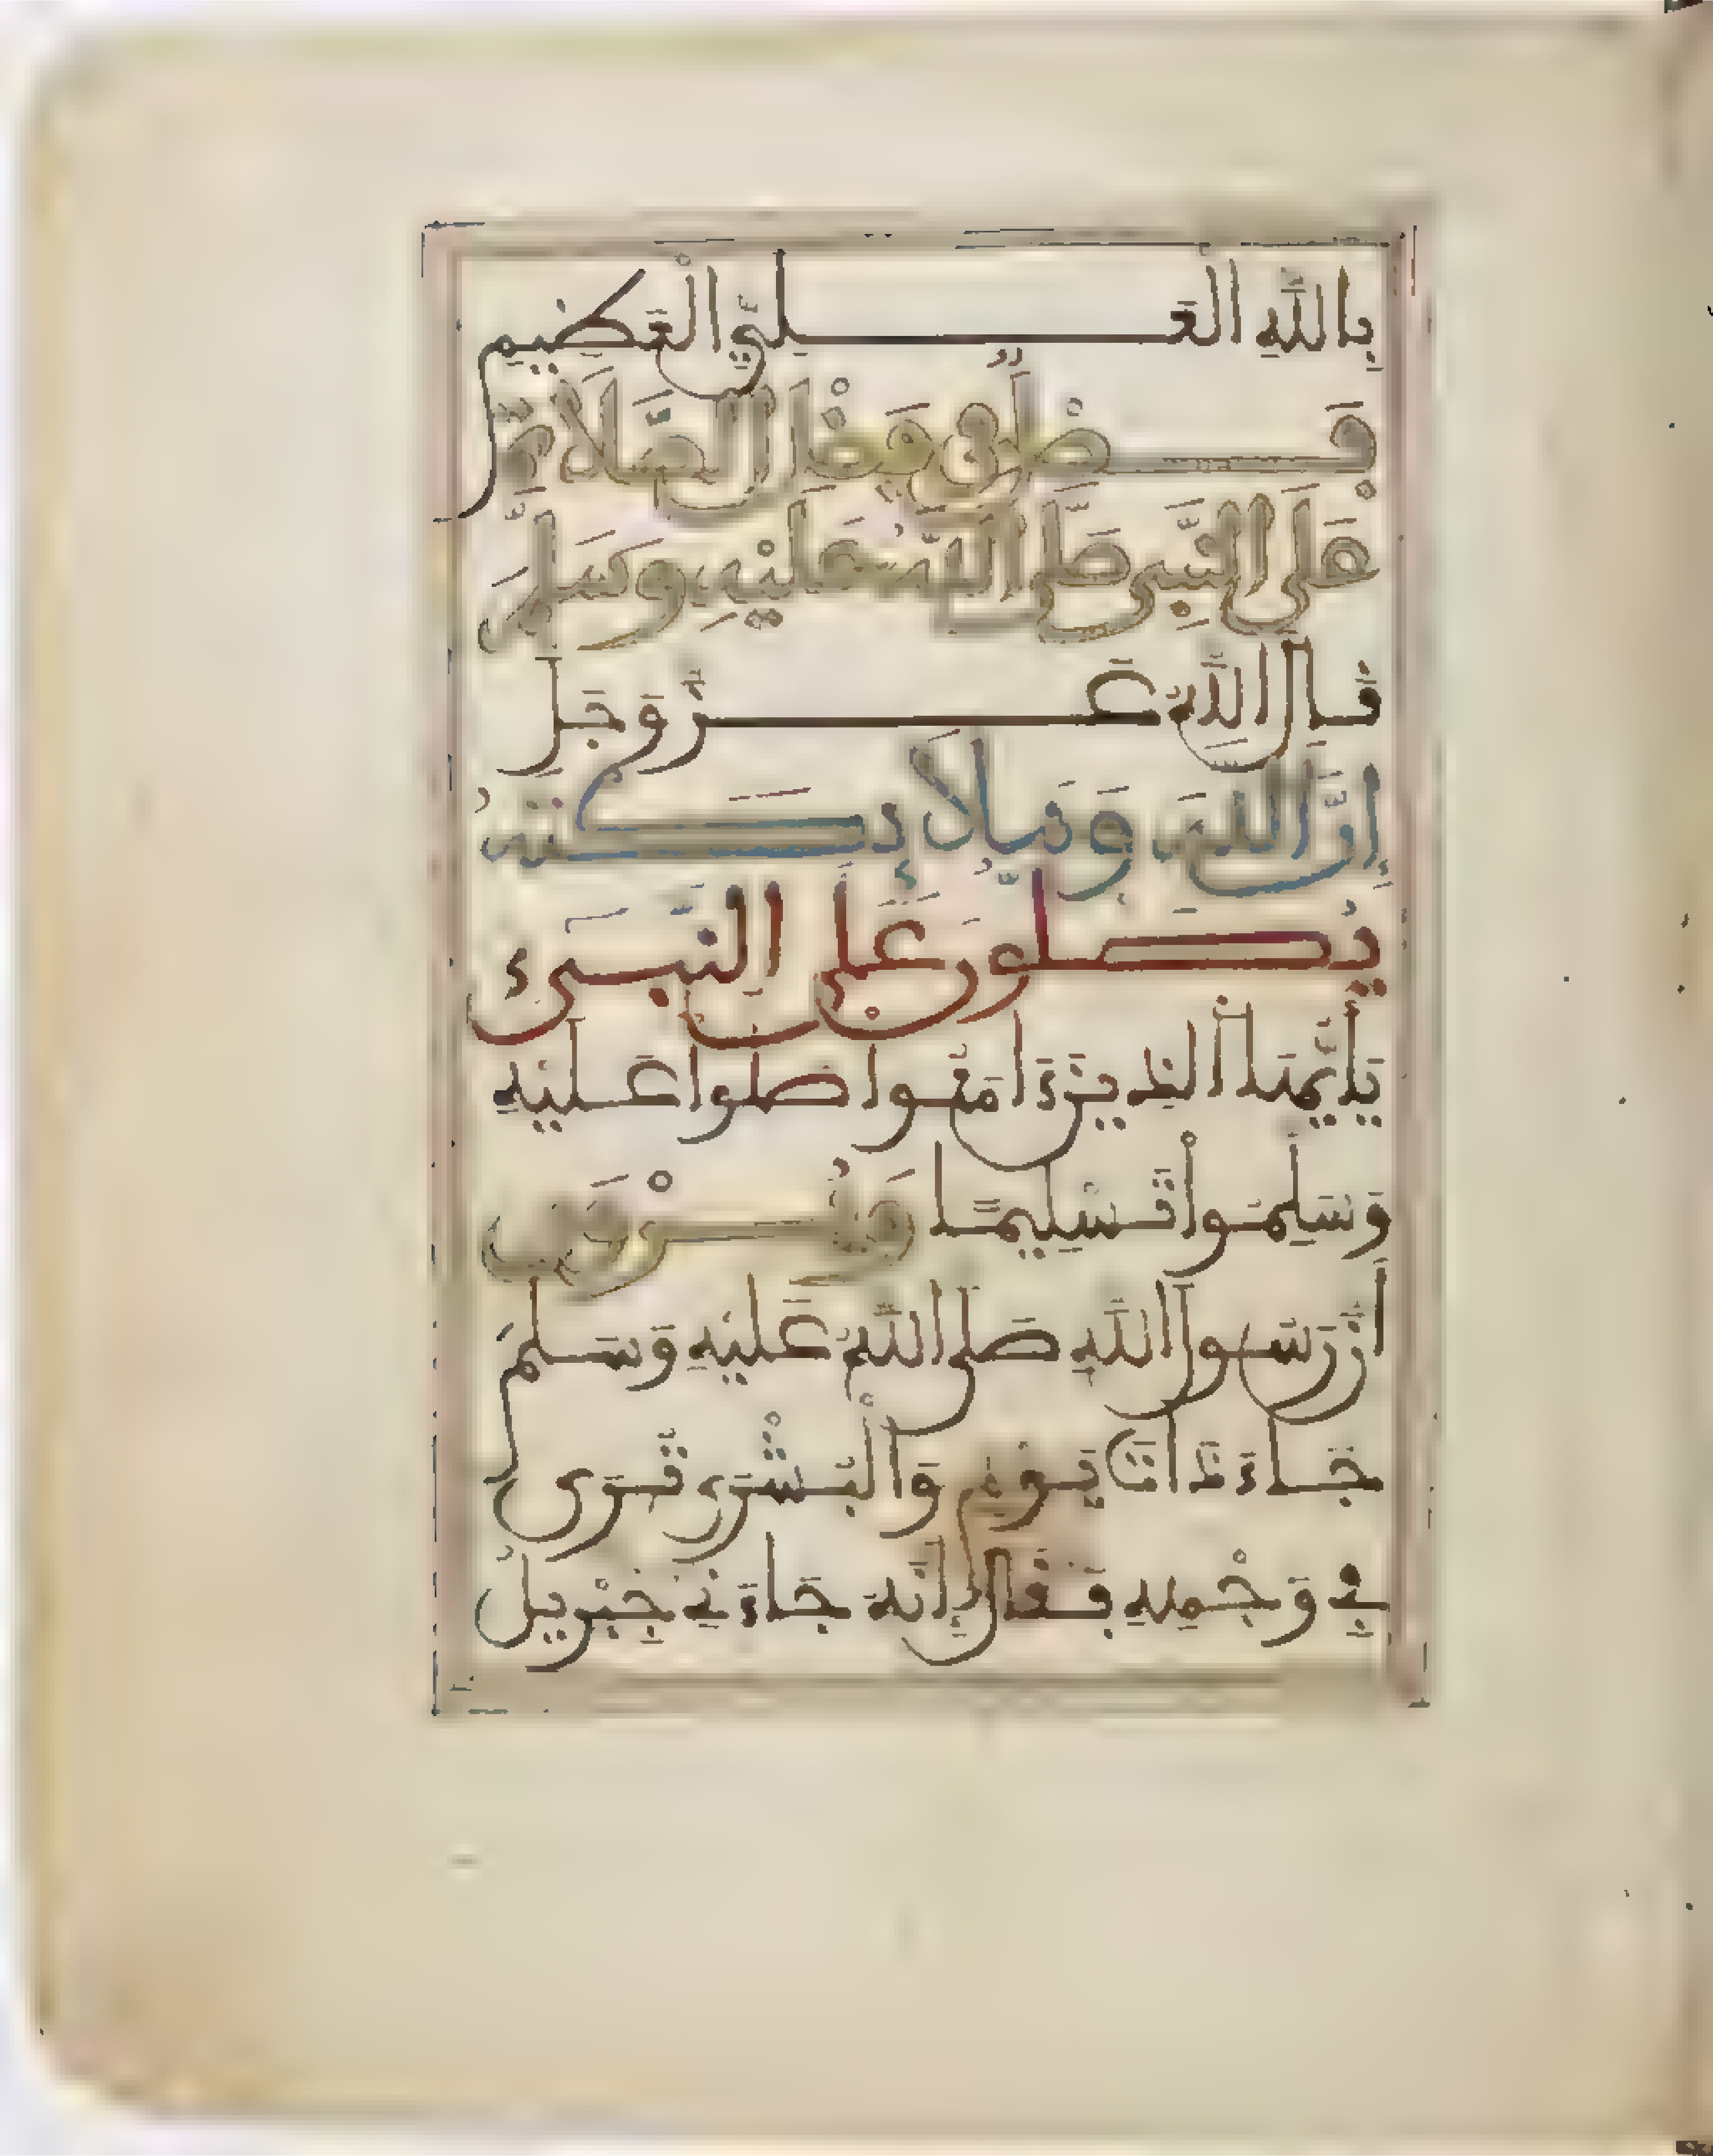 بِاللَّهِ الْعَلِيِّ الْعَظِيمِ
فَصْلٌ فِي فَضْلِ الصَّلَاةِ
عَلَى النَّبِيِّ صَلَّى اللَّهُ عَلَيْهِ وَسَلَّمَ
قَالَ اللَّهُ عَزَّ وَجَلَّ
إِنَّ اللَّهَ وَمَلَائِكَتَهُ
يُصَلُّونَ عَلَى النَّبِيءِ
يَأَيُّهَا الَّذِينَ ءَامَنُوا صَلُّوا عَلَيْهِ
وَسَلِّمُوا تَسْلِيمًا وَيُرْوَى
أَنَّ رَسُولَ اللَّهِ صَلَّى اللَّهُ عَلَيْهِ وَسَلَّمَ
جَاءَ ذَاتَ يَوْمٍ وَالْبُشْرَى تُرَى
فِي وَجْهِهِ فَقَالَ إِنَّهُ جَاءَنِي جِبْرِيلُ